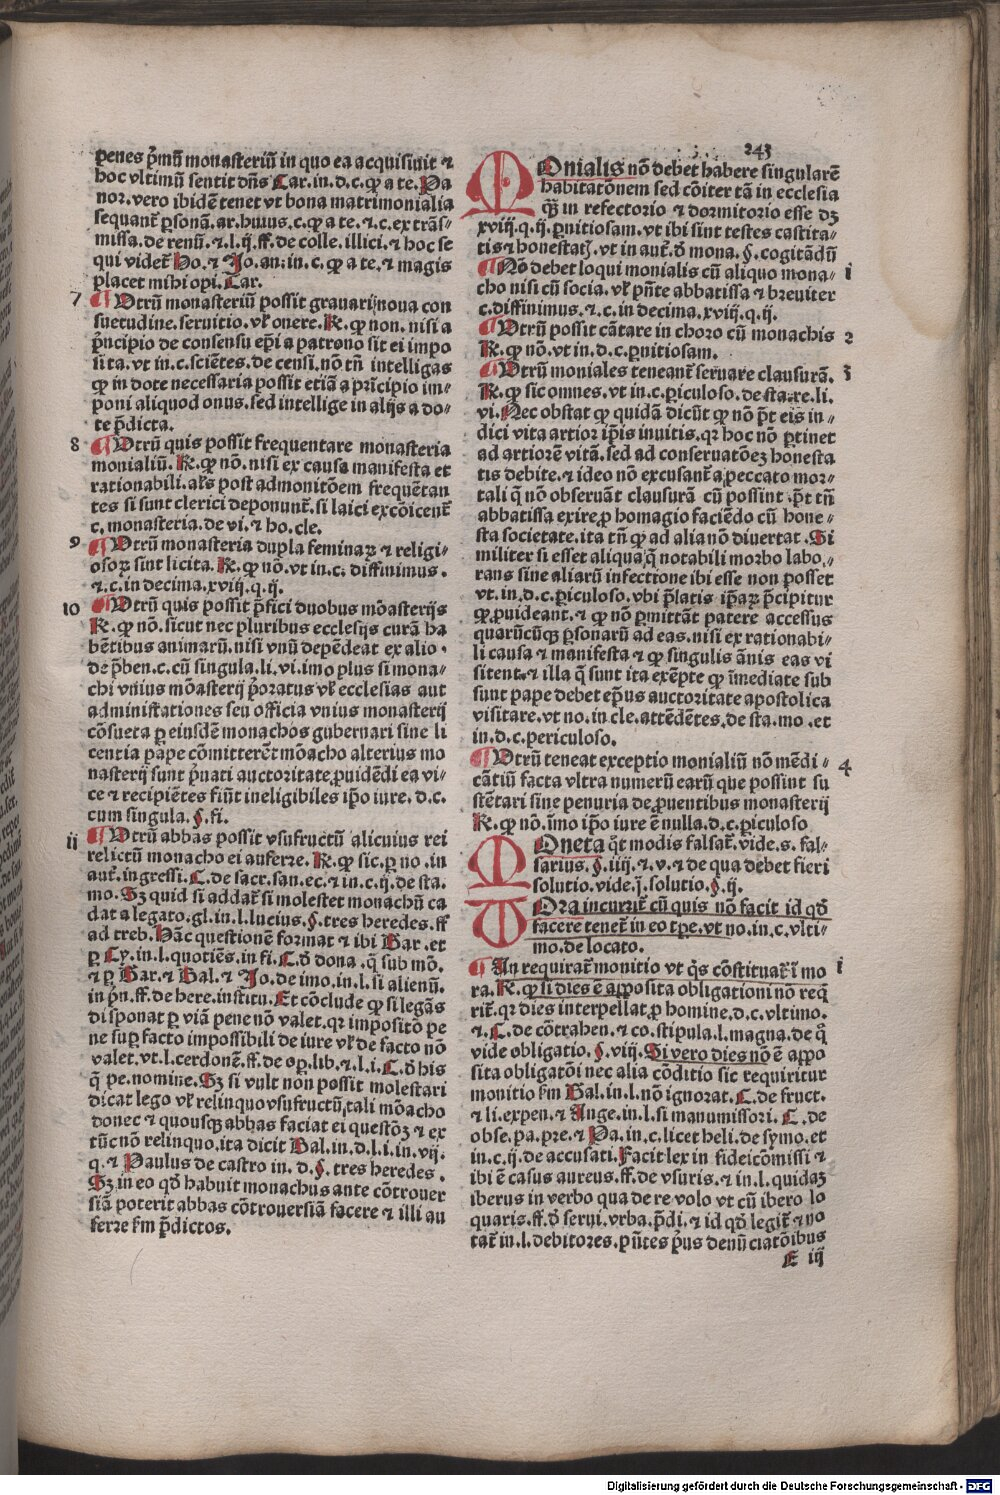 243
penes p̃mũ monasteriũ in quo ea acquisiuit ⁊
hoc vltimũ sentit dñs Car. in. d. c. ꝙ a te. Pa
nor. vero ibidẽ tenet vt bona matrimonialia
sequant᷑ ꝑsonã. ar. huius. c. ꝙ a te. ⁊. c. ex trãs⸗
missa. de renũ. ⁊. l. ij. ff. de colle. illici. ⁊ hoc se
qui videt᷑ Ho. ⁊ Jo. an. in. c. ꝙ a te. ⁊ magis
placet mihi opi. Car.
7 ¶ Utrũ monasteriũ possit grauari noua con
suetudine. seruitio. vł onere. R. ꝙ non. nisi a
p̃ncipio de consensu ep̃i a patrono sit ei impo
sita. vt in. c. sciẽtes. de censi. nõ tñ intelligas
ꝙ in dote necessaria possit etiã a prĩcipio im⸗
poni aliquod onus. sed intellige in alijs a do⸗
te p̃dicta.
8 ¶ Utrũ quis possit frequentare monasteria
monialiũ. R. ꝙ nõ. nisi ex causa manifesta et
rationabili. als̃ post admonitõem frequẽtan
tes si sunt clerici deponunt᷑. si laici excõicent᷑
c. monasteria. de vi. ⁊ ho. cle.
9 ¶ Utrũ monasteria dupla feminaꝝ ⁊ religi⸗
osoꝝ sint licita. R. ꝙ nõ. vt in. c. diffinimus.
⁊. c. in decima. xviij. q. ij.
10 ¶ Utrũ quis possit p̃fici duobus mõasterijs
R. ꝙ nõ. sicut nec pluribus ecclesijs curã ha
bẽtibus animarũ. nisi vnũ depẽdeat ex alio.
de p̃ben. c. cũ singula. li. vi. imo plus si mona⸗
chi vnius mõasterij p̃oratus vł ecclesias aut
administrationes seu officia vnius monasterij
cõsueta ꝑ eiusdẽ monachos gubernari sine li
centia pape cõmitterẽt mõacho alterius mo
nasterij sunt p̃uati auctoritate ꝓuidẽdi ea vi⸗
ce ⁊ recipiẽtes fiũt ineligibiles ip̃o iure. d. c.
cum singula. §. fi.
ii ¶ Utrũ abbas possit vsufructũ alicuius rei
relictũ monacho ei auferre. R. ꝙ sic. ꝑ no. in
aut᷑. ingressi. C. de sacr. san. ec. ⁊ in. c. ij. de sta.
mo. Sꝫ quid si addat᷑ si molestet monachũ ca
dat a legato. gl. in. l. lucius. §. tres heredes. ff
ad treb. Hãc questionẽ format ⁊ ibi Bar. et
ꝑ Cy. in. l. quotiẽs. in fi. C. ð dona. q̃ sub mõ.
⁊ ꝑ Bar. ⁊ Bal. ⁊ Jo. de imo. in. l. si alienũ.
in p̃n. ff. de here. institu. Et cõclude ꝙ si legãs
disponat ꝑ viã pene non valet. qr impositõ pe
ne suꝑ facto impossibili de iure vł de facto nõ
valet. vt. l. cerdonẽ. ff. de oꝑ. lib. ⁊. l. i. C. ð his
q̃ pe. nomine. Sꝫ si vult non possit molestari
dicat lego vł relinquo vsufructũ tali mõacho
donec ⁊ quousqꝫ abbas faciat ei questõꝫ ⁊ ex
tũc nõ relinquo. ita dicit Bal. in. d. l. i. in. vij.
q. ⁊ Paulus de castro in. d. §. tres heredes.
Sꝫ in eo qð habuit monachus ante cõtrouer
siã poterit abbas cõtrouersiã facere ⁊ illi au
ferre ẜm p̃dictos.
MOnialis nõ debet habere singularẽ
habitatõnem sed cõiter tã in ecclesia
qꝫ̃ in refectorio ⁊ dormitorio esse dꝫ
xviij. q. ij. ꝑnitiosam. vt ibi sint testes castita⸗
tis ⁊ honestatꝭ. vt in aut᷑. ð mona. §. cogitãdũ
¶ Nõ debet loqui monialis cũ aliquo mona⸗ i
cho nisi cũ socia. vł p̃nte abbatissa ⁊ breuiter
c. diffinimus. ⁊. c. in decima. xviij. q. ij.
¶ Utrũ possit cãtare in choro cũ monachis 2
R. ꝙ nõ. vt in. d. c. ꝑnitiosam.
¶ Utrũ moniales teneant᷑ seruare clausurã. 3
R. ꝙ sic omnes. vt in. c. ꝑiculoso. de sta. re. li.
vi. Nec obstat ꝙ quidã dicũt ꝙ nõ p̃t eis in⸗
dici vita artior ip̃is inuitis. qr hoc nõ ꝑtinet
ad artiorẽ vitã. sed ad conseruatõeꝫ honesta
tis debite. ⁊ ideo nõ excusant᷑ a peccato mor⸗
tali q̃ nõ obseruãt clausurã cũ possint. p̃t tñ
abbatissa exire ꝓ homagio faciẽdo cũ hone⸗
sta societate. ita tñ ꝙ ad alia nõ diuertat. Si
militer si esset aliqua q̃ notabili morbo labo⸗
rans sine aliarũ infectione ibi esse non posset
vt. in. d. c. ꝑiculoso. vbi p̃latis ip̃aꝝ p̃cipitur
ꝙ ꝓuideant. ⁊ ꝙ nõ ꝑmittãt patere accessus
quarũcũqꝫ ꝑsonarũ ad eas. nisi ex rationabi⸗
li causa ⁊ manifesta ⁊ ꝙ singulis ãnis eas vi
sitent. ⁊ illa q̃ sunt ita exẽpte ꝙ ĩmediate sub
sunt pape debet ep̃us auctoritate apostolica
visitare. vt no. in cle. attẽdẽtes. de sta. mo. et
in. d. c. periculoso.
¶ Utrũ teneat exceptio monialiũ nõ mẽdi⸗ 4
cãtiũ facta vltra numerũ earũ que possint su
stẽtari sine penuria de ꝓuentibus monasterij
R. ꝙ nõ. ĩmo ip̃o iure ẽ nulla. d. c. ꝑiculoso
MOneta q̃t modis falsat᷑. vide. s. fal⸗
sarius. §. iiij. ⁊. v. ⁊ de qua debet fieri
solutio. vide. j. solutio. §. ij.
MOra incurrit᷑ cũ quis nõ facit id qð
facere tenet᷑ in eo tꝑe. vt no. in. c. vlti⸗
mo. de locato.
¶ An requirat᷑ monitio vt q̃s cõstituat᷑ ĩ mo i
ra. R. ꝙ si dies ẽ apposita obligationi nõ req̃
rit᷑. qr dies interpellat ꝓ homine. d. c. vltimo.
⁊. C. de cõtrahen. ⁊ co. stipula. l. magna. de q̃
vide obligatio. §. viij. Si vero dies nõ ẽ appo
sita obligatõi nec alia cõditio sic requiritur
monitio ẜm Bal. in. l. nõ ignorat. C. de fruct.
⁊ li. expen. ⁊ Ange. in. l. si manumissori. C. de
obse. pa. pre. ⁊ Pa. in. c. licet heli. de symo. et
in. c. ij. de accusati. Facit lex in fideicõmissi ⁊
ibi ẽ casus aureus. ff. de vsuris. ⁊ in. l. quidaꝫ
iberus in verbo qua de re volo vt cũ ibero lo
quaris. ff. ð serui. vrba. p̃di. ⁊ id qð legit᷑ ⁊ no
tat᷑ in. l. debitores. p̃ntes p̃us denũciatõibus
E iij
Digitalisierung gefördert durch die Deutsche Forschungsgemeinschaft - DFG